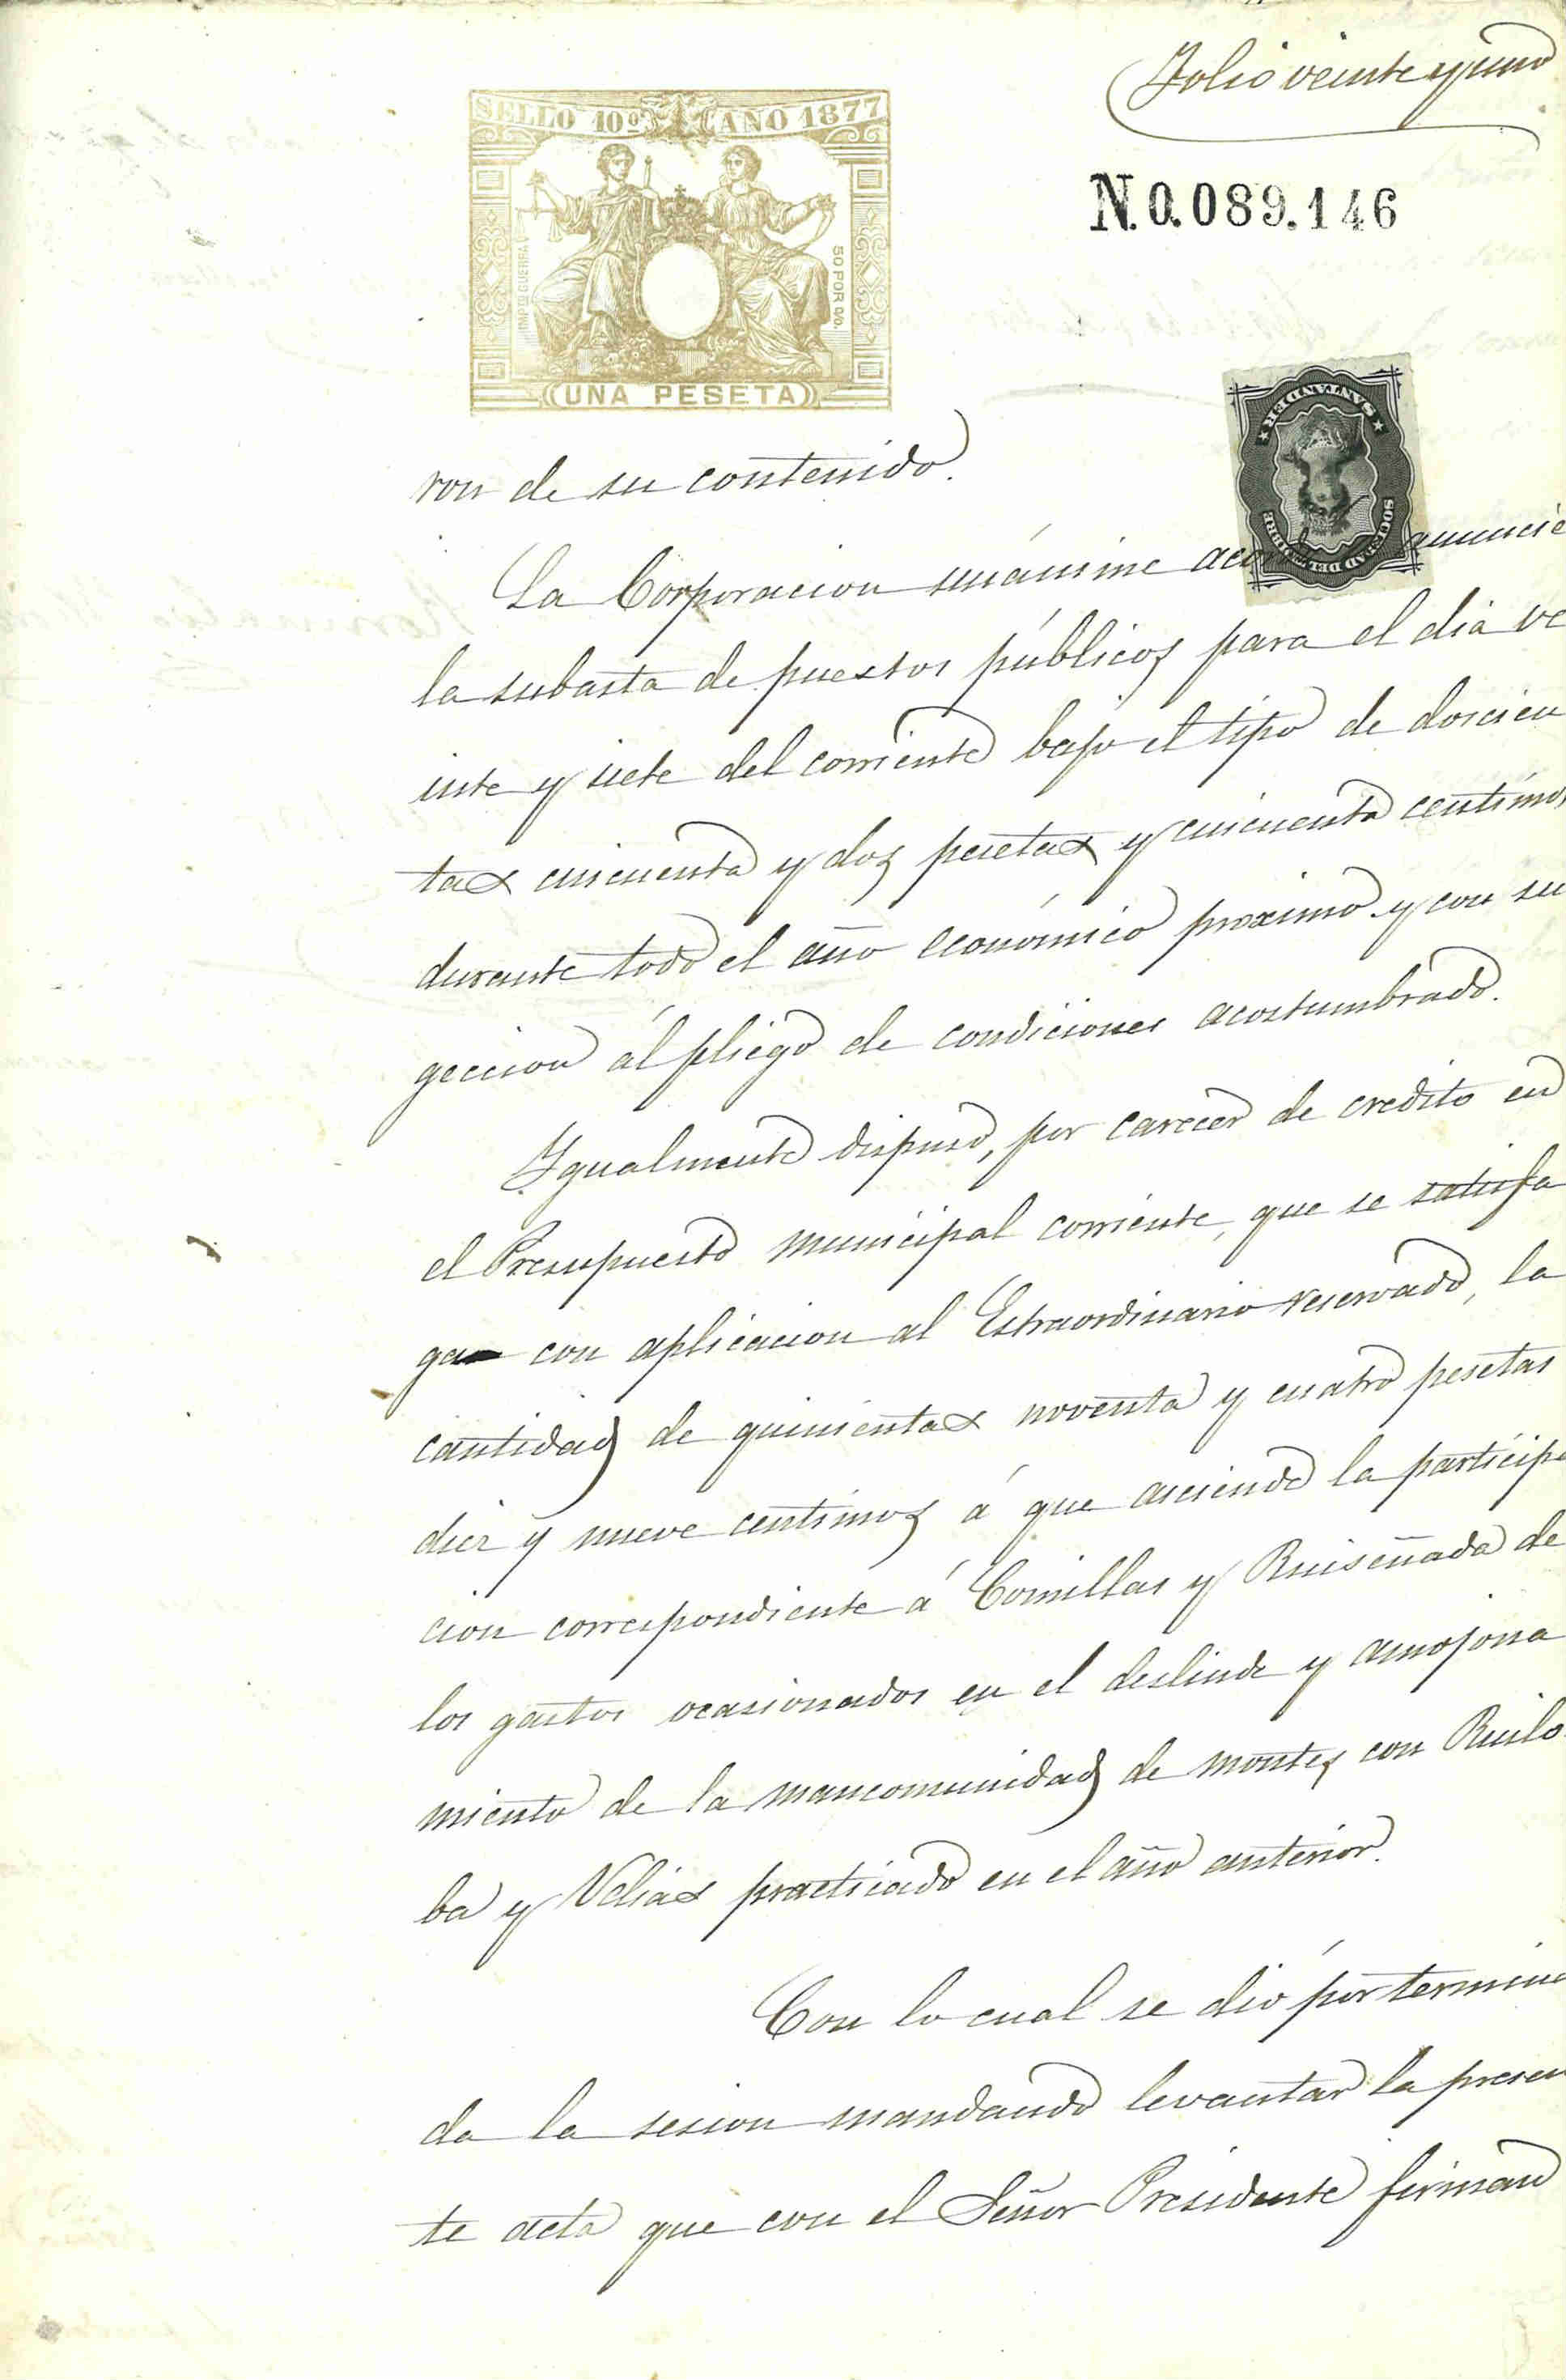 Folio veinte y uno
SELLO 10º AÑO 1877
N.0.089.146
IMPTO GUERRA
50 POR 0/0.
UNA PESETA
SANTANDER
SOCIEDAD DEL TIMBRE
ron de su contenido.
La Corporacion unánime anuncie
la subasta de puestos públicos para el dia ve
inte y siete del corriente bajo el tipo de doscien
tas cincuenta y dos pesetas y cincuenta centimos
durante todo el año económico proximo y con su
geccion ál pliego de condiciones acostumbrado.
Ygualmente dispuso, por carecer de credito en
el Presupuesto municipal corriente, que se satisfa
ga con aplicacion al Estraordinario reservado, la
cantidad de quinientas noventa y cuatro pesetas
diez y nueve centimos á que asciende la participa
cion correspondiente á Comillas y Ruiseñada de
los gastos ocasionados en el deslinde y amojona
miento de la mancomunidad de montes con Ruilo
ba y Udias practicado en el año anterior.
Con lo cual se dió por termina
da la sesion mandando levantar la presen
te acta que con el Señor Presidente firman